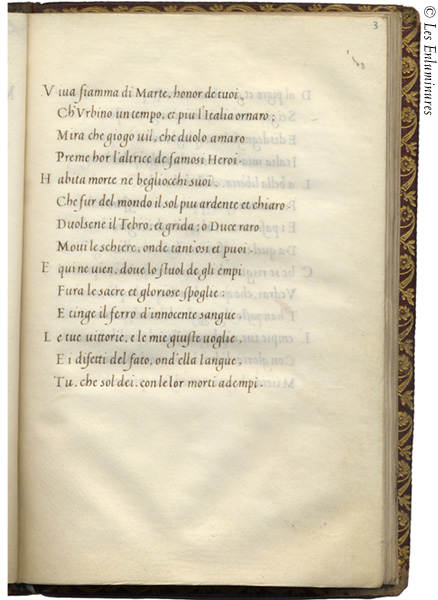 3
V iua fiamma di Marte, honor de tuoi,
Ch'Vrbino un tempo, et piu l'Italia ornaro;
Mira che giogo uil, che duolo amaro
Preme hor l'altrice de famosi Heroi.
H abita morte ne begliocchi suoi.
Che fur del mondo il sol piu ardente et chiaro.
Duolsene il Tebro, et grida; o Duce raro
Moui le schiere, onde tant'osi et puoi.
E qui ne uien, doue lo stuol de gli empi
Fura le sacre et gloriose spoglie.
E tinge il ferro d'innocente sangue.
L e tue uittorie, e le mie giuste uoglie,
E i difetti del fato, ond'ella langue,
Tu, che sol dei, con le lor morti adempi.
© Les Enluminures